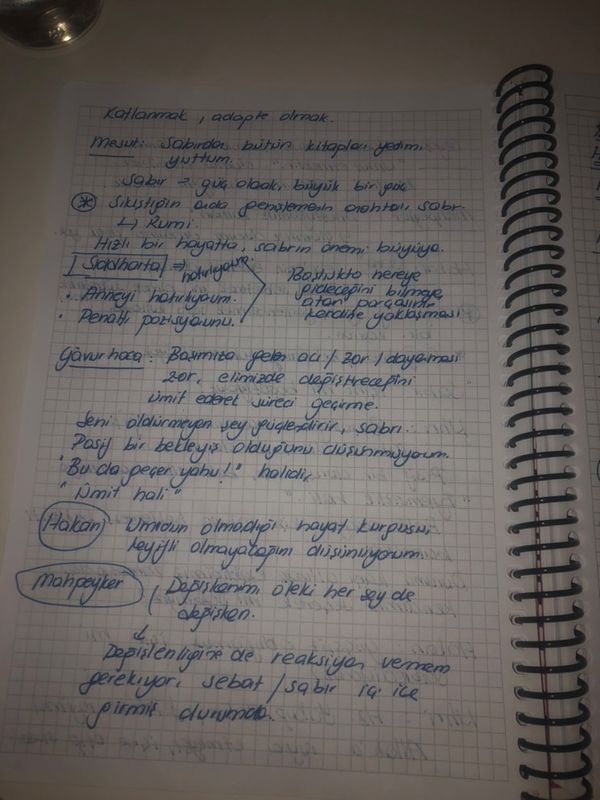 Katlanmak, adapte olmak.
Mesut: Sabırdan bütün kitapları yedim, yuttum.
Sabır = güç olarak, büyük bir güç
* Sıkıştığın anda genişlemenin anahtarı sabır.
↳ Rumi
Hızlı bir hayatta, sabrın önemi büyüyor.
Siddharta ⇒ hatırlıyorum.
• Anneyi hatırlıyorum.
• Penaltı pozisyonunu.
Boşlukta nereye
gideceğini bilmeyen
atom parçasının
kendine yaklaşması
Gavur hoca: Başımıza gelen acı / zor / dayanması
zor, elimizde değiştireceğini
ümit ederek süreci geçirme.
Seni öldürmeyen şey güçlendirir, sabrı.
Pasif bir bekleyiş olduğunu düşünmüyorum.
"Bu da geçer yahu!" halidir,
"Ümit hali"
Hakan Umudun olmadığı hayat kurgusu,
keyifli olmayacağını düşünüyorum.
Mahpeyker / Değişkenimi öteki her şey de
değişken.
↓
Değişkenliğine de reaksiyon vermem
gerekiyor, sebat / sabır iç içe
girmiş durumda.